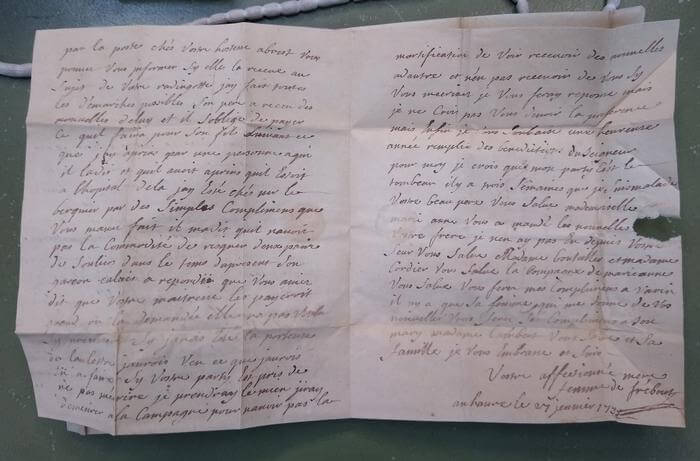 par la poste chés Votre hoteur abrest Vous
pouvez Vous informer Sy elle la receue au
Sujet de Votre redingotte jay fait toutes
les démarches possibles Son pere a receu des
nouvelles deluy et il Soblige de payer
ce quil faira pour Son fils suivant ce
que jay apris par une personne
il laidit et quil avoit apris quil Estoit
a lhopital dela jay Esté chés mr le
berquier par des Simples Complimens que
Vous maviez fait il madit quil navoit
pas la Commodité de
de Souliers dans le tems Son
garçon calais a repondu que Vous aviez
dit que Votre maitresse les payeroit
quand on la demandée elle na pas
Sy javois Esté la porteuse
de la lettre jaurois Veu ce que jaurois
a faire Sy Votre party Est pris de
ne pas mecrire je prendray le mien jiray
demeurer a la Campagne pour navoir pas la
mortification de Voir recevoir des nouvelles
dautre et non pas recevoir des Vos Sy
Vous mecrivez je Vous feray reponse mais
je ne Crois pas Vous devoir la preference
mais Enfin je Vous Souhaite une heureuse
année remplie des bénédictions du Seigneur
pour moy je crois que mon party Est le
tombeau il y a trois Semaines que je suis malade
Votre beau pere Vous Salue mademoiselle
marie anne Vous a mandé les nouvelles
Votre frere je nen ay pas eu depuis Votre
Seur Vous Salue Madame et madame
Cordier Vous Salue la Compagne de marie anne
Vous Salue Vous ferez mes Complimens a Varin
il ny a que Sa femme qui me donne de Vos
nouvelles Vous ferez Ses Complimens a Son
mary madame Lambert Vous Salue et Sa
famille je Vous Embrasse et Suis
Votre affectionnée mere
femme de frébourg
au havre le 27 janvier